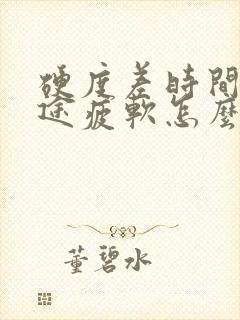 硬度差時間
途疲軟怎麼
董碧水